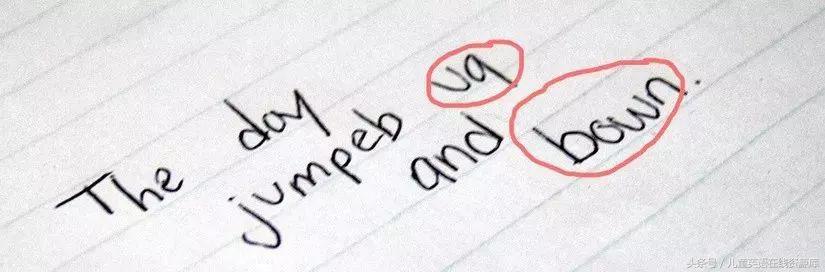 The doy
jumpeb uq
and bown.
头条号 / 儿童英语在线资源库